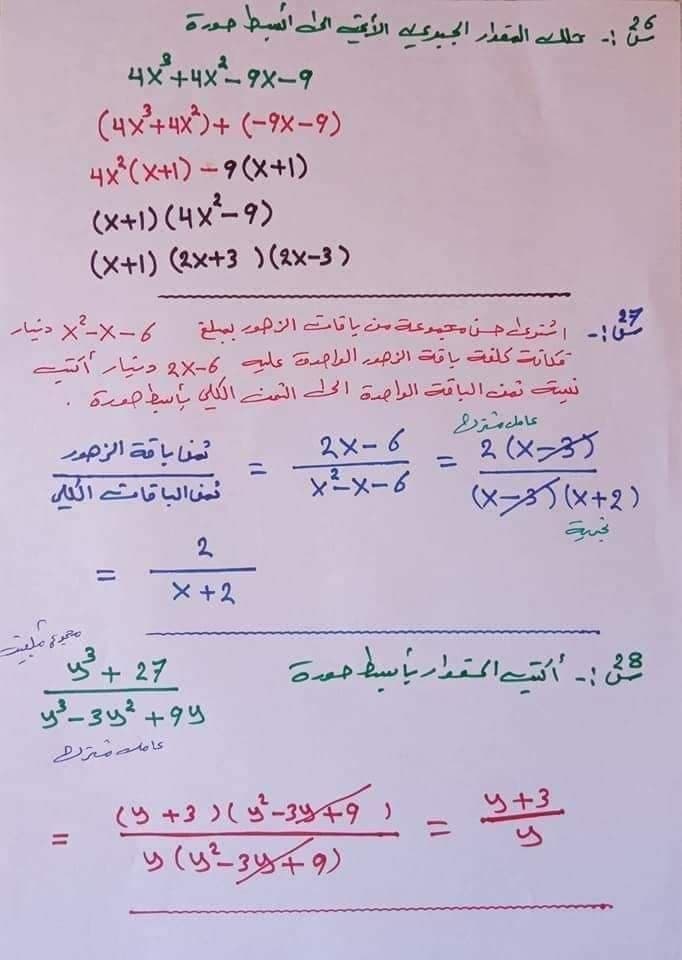 س26 :- حلل المقدار الجبري الآتي الى أبسط صورة
4x³+4x²-9x-9
(4x³+4x²)+(-9x-9)
4x²(x+1)-9(x+1)
(x+1)(4x²-9)
(x+1)(2x+3)(2x-3)
س27 :- اشترى حسن مجموعة من باقات الزهور بمبلغ x²-x-6 دينار
فكانة كلفة باقة الزهور الواحدة عليه 2x-6 دينار أكتب
نسبة ثمن الباقة الواحدة الى الثمن الكلي بأبسط صورة .
عامل مشترك
ثمن باقة الزهور / ثمن الباقات الكلي = 2x-6 / x²-x-6 = 2(x-3) / (x-3)(x+2)
تجربة
= 2 / x+2
س28 :- أكتب المقدار بأبسط صورة
مجموع مكعبين
y³+27 / y³-3y²+9y
عامل مشترك
= (y+3)(y²-3y+9) / y(y²-3y+9) = y+3 / y